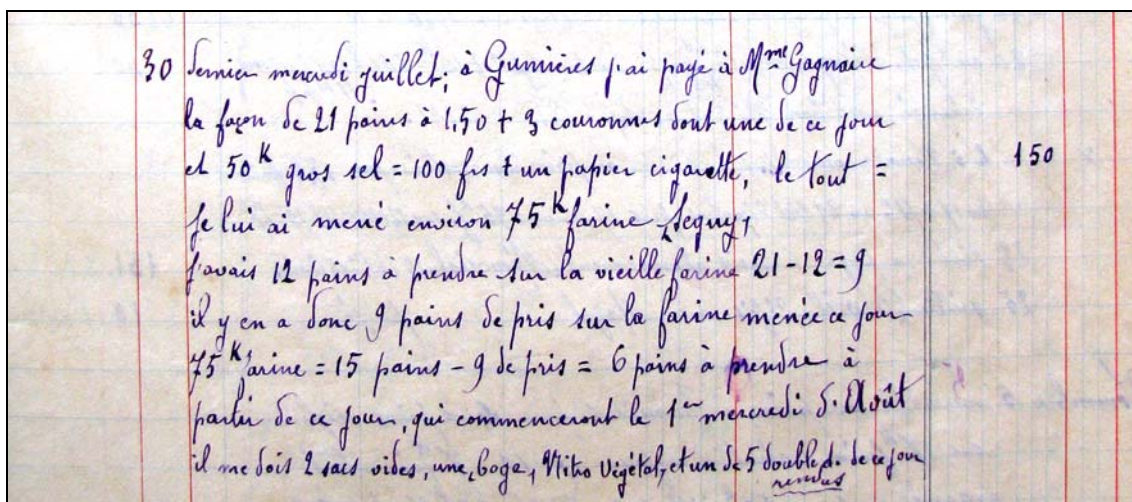 30 dernier mercredi juillet; à Gumières j'ai payé à Mme Gagnaire
la façon de 21 pains à 1,50 + 3 couronnes dont une de ce jour
et 50K gros sel = 100 frs + un papier cigarette, le tout = 150
je lui ai mené environ 75K farine Seguy,
j'avais 12 pains à prendre sur la vieille farine 21-12=9
il y en a donc 9 pains de pris sur la farine menée ce jour
75K farine = 15 pains - 9 de pris = 6 pains à prendre à
partir de ce jour, qui commenceront le 1er mercredi d'Août
il me dois 2 sacs vides, une, boge, Nitro Végétal, et un de 5 double d. de ce jour
rendus